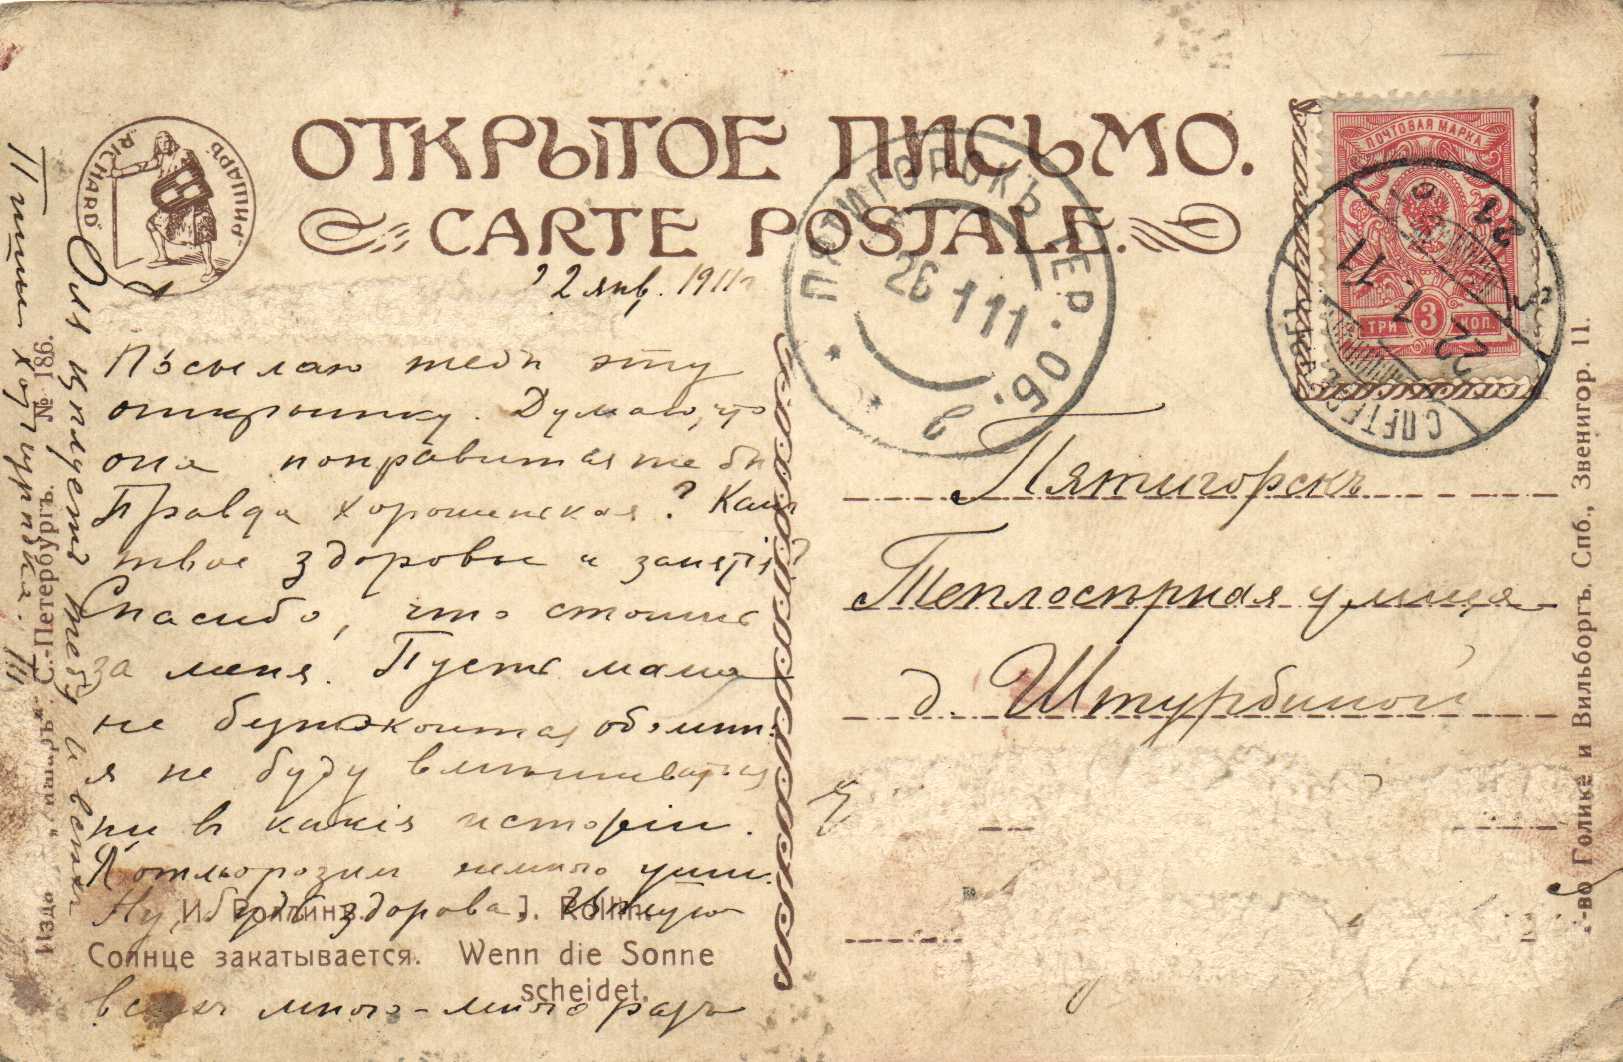 ОТКРЫТОЕ ПИСЬМО.
CARTE POSTALE.
„RICHARD“ „РИШАРЪ“
22 янв. 1911г
Посылаю тебѣ эту
открытку. Думаю, что
она понравится тебѣ.
Правда хорошенькая? Какъ
твое здоровье и занятія?
Спасибо, что стоишь
за меня. Пусть мама
не безпокоится обо мнѣ:
я не буду вмѣшиваться
ни въ какія исторіи.
Я отморозилъ немного уши.
Ну, будь здорова, Цѣлую
всѣхъ много-много разъ
Оля цѣлуетъ тебя и всѣхъ
Пиши
И. Роллинъ. J. Rollin.
Солнце закатывается. Wenn die Sonne
scheidet.
„Ришаръ“ С.-Петербургъ. № 186.
ПОЧТОВАЯ МАРКА
ТРИ 3 КОП.
С.ПЕТЕРБ
22 1 11
21
ПЯТИГОРСКЪ ТЕР. ОБ.
26 1 11
Пятигорскъ
Теплосѣрная улица
д. Штурбиной
Т-во Голике и Вильборгъ. Спб., Звенигор. 11.